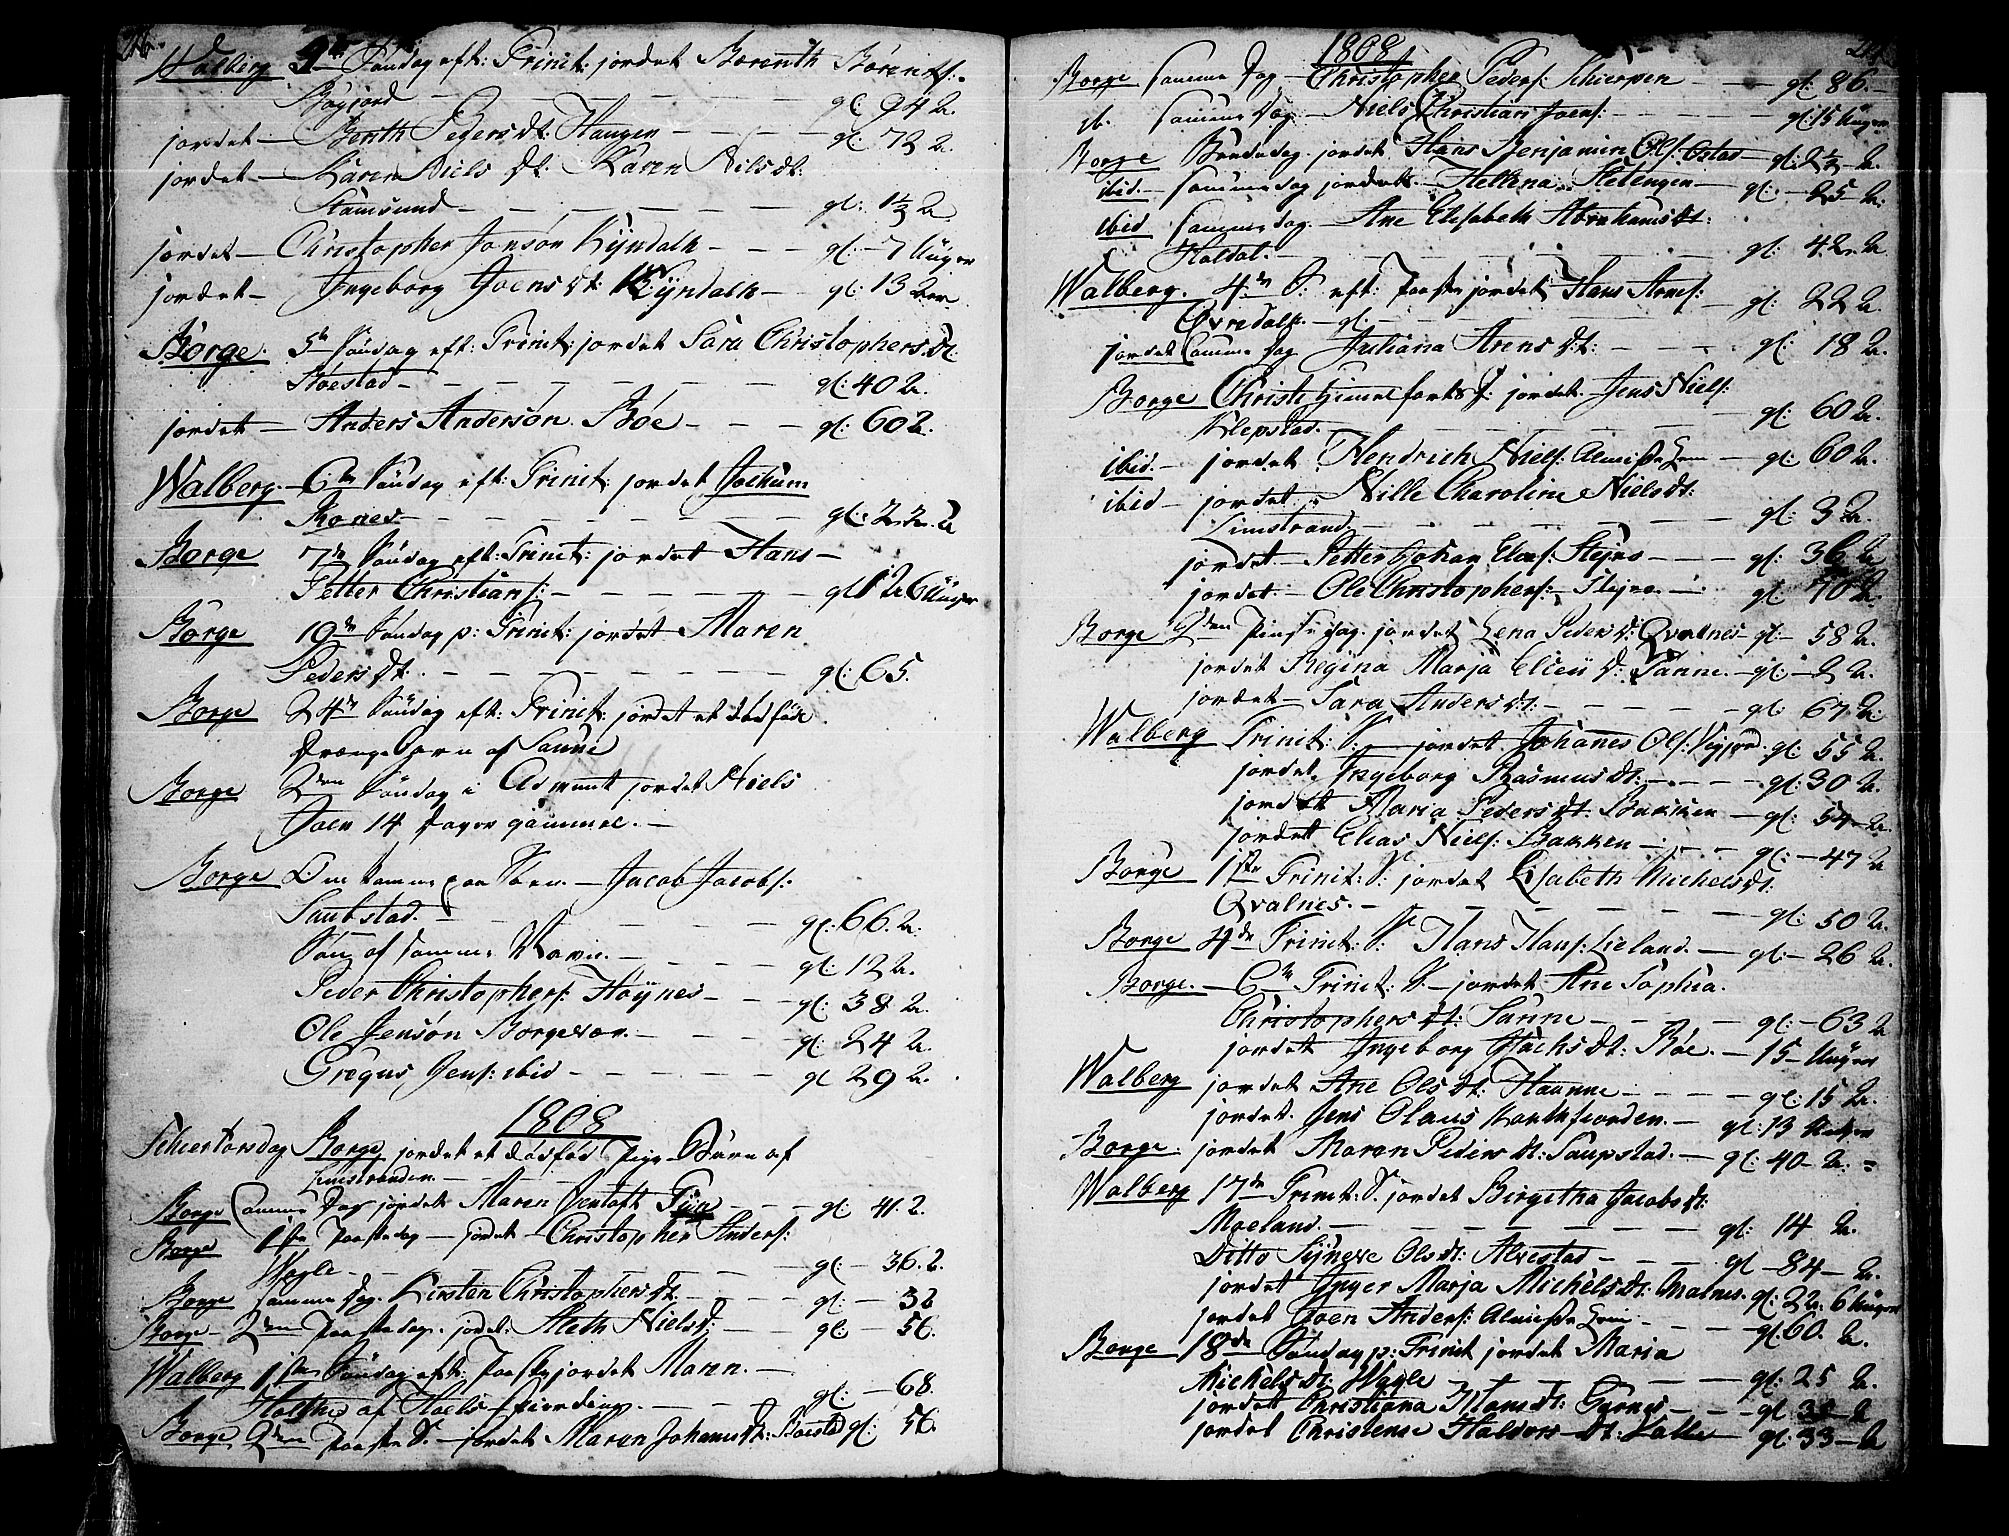 Walberg 4de Søndag eft: Trinit: jordet Berenth Børents:
Bøgjord — gl: 94 a.
jordet — Berith Peders dt: Haugen — gl: 72 a.
jordet — Karen Niels dt: Karen Nilsdt:
Stamsund — gl: 1½ a
jordet — Christopher Jonsøn Kyndalh — gl: 7 Uuger
jordet — Ingeborg Joens dt: Kyndalh — gl: 13 Uuger
Borge. 5te Søndag eft: Trinit: jordet Sara Christophers dt.
Bøestad — gl: 40 a.
jordet — Anders Andersøn Bøe — gl: 60 a.
Walberg 6te Søndag eft: Trinit: jordet Jochum
Rones — gl: 22 a
Borge 7de Søndag eft: Trinit: jordet Hans
Petter Christians: — gl: 1 a 6 Uuger
Borge 19de Søndag p: Trinit: jordet Maren
Peders dt. — gl: 65.
Borge 24de Søndag eft: Trinit: jordet et dødføde
Drænge Barn af Sanne
Borge 2den Søndag i Advent jordet Niels
Joen 14 Dager gammel. —
Borge Omkomme paa Søen — Jacob Jacobs:
Saubstad. — gl: 66. a.
Søn af samme Navn. — gl: 12 a.
Peder Christophers: Høynes — gl: 38 a.
Ole Jensøn Borgevær. — gl: 24 a.
Gregus Jens: ibid — gl 29 a.
1808
Schiertorsdag Borge jordet et dødføs Pige Barn af
Limstranden.
Borge samme Dag jordet Maren Bentoft — gl: 41. a.
Borge 1ste Paaskedag — jordet — Christopher Anders:
Wegle — gl: 36. a.
Borge samme dag. Kirsten Christophers dt. — gl: — 32
Borge — 2den Paaskedag. jordet: Aleth Niels dt: — gl: — 56.
Walberg 1ste Søndag eft: Paaske jordet Maren. —
Holthe af Hoels fierding. — gl: — 68.
Borge 2den Paaske S. — jordet Maren Johannes dt: Boestad gl: 56.
1808
Borge samme Dag — Christopher Peders: Schierpen — gl: 86. —
ib. samme dag — Niels Christian Joens: — gl: 15 Uuger
Borge Bededag jordet Hans Benjamin Ols: — gl: 2½ a.
ibid — samme dag jordet. Hellena Stetengen — gl: — 25 a.
ibid samme dag. Ane Elisabeth Abrahams dt:
Haldal. — gl: 42 a
Walberg. 4de S: eft: Paaske jordet Hans Arnes:
Øvredalh. — gl: 22 a
jordet samme dag Juliana Arens dt: — gl: 18 a.
Borge Christi Himmelfarts D: jordet. Jens Niels:
Klepstad. — gl: 60 a.
ibid. — jordet Hendrich Niels: Almisse Lem — gl: 60 a.
ibid — jordet. Nille Charoline Niels dt:
Limstrand. — gl: 3 a.
jordet — Petter Johan Elias: Steiro — gl: 36 a
jordet. — Ole Christophers: Steiro. — gl. 70 a.
Borge 2den Pinsedag. jordet Lena Peders dt: Qvalnes — gl: — 58 a.
jordet Regina Marja Elieii dt: Sanne. — gl: — 2 a.
jordet — Sara Anders dt: — gl: 67 a.
Walberg Trinit: S. — jordet Johanes Ols: — gl: 55 a.
jordet, Ingeborg Rasmus dt: — gl: 30 a.
jordet Maria Peders dt. Bakken — gl: 54 a.
jordet Elias Niels: Bakken — gl: — 47 a
Borge 1ste Trinit: S: jordet Elsabeth Michels dt:
Qvalnes. — gl: 50 a.
Borge 4de Trinit: S: Hans Hans: Lieland. — gl: — 26 a.
Borge. — 6te Trinit: S. — jordet Ane Sophia.
Christophers dt: Sanne — gl: — 63 a
jordet Ingeborg Isachs dt: Bøe. — 15 — Uuger
Walberg jordet Ane Ols dt: — gl: 15 a.
jordet. Jens Olaus — gl: 13 Uuger
Borge. jordet Maren Peders dt: Saupstad. — gl: 40 a.
Walberg 17de Trinit: S. jordet Birgetha Jacobs dt:
Moeland. — gl: 14 a.
Ditto Synneve Ols dt: Alvestad — gl — 84 — a.
jordet Inger Marja Michels dt: — gl: 2 a. 6 Uuger
jordet Joen Anders: Almisse Lem — gl 60. a.
Borge 18de Søndag p: Trinit jordet Maria
Michels dt: Wegle — gl: 25 a.
jordet Christiana — gl 32 a
jordet Christense Haldors dt: Valle — gl: 33 — a